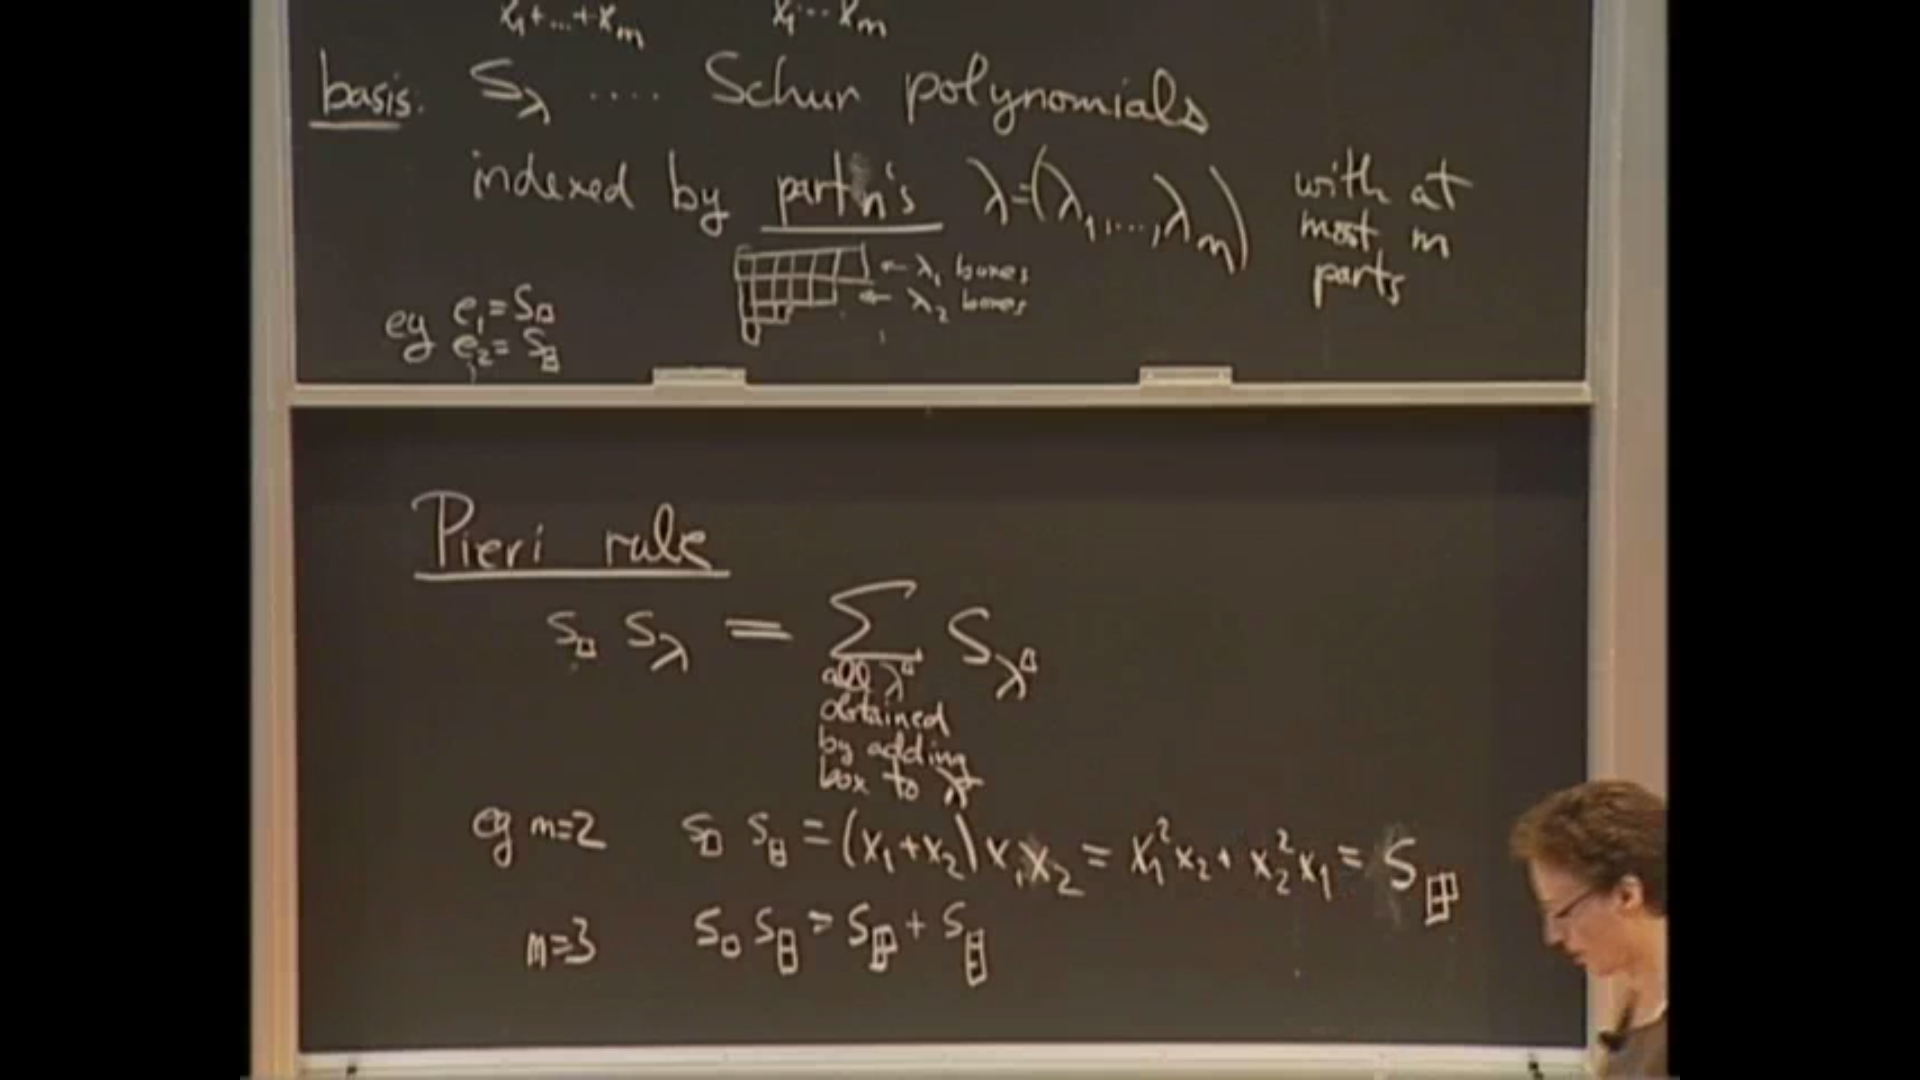 x₁+...+xₘ x₁...xₘ
basis. S_λ .... Schur polynomials
indexed by part'n's λ=(λ₁,...,λₘ) with at most m parts
← λ₁ boxes
← λ₂ boxes
eg e₁=S_□
e₂=S_⊟
Pieri rule
S_□ S_λ = ∑ S_λ^□
all λ^□
obtained
by adding
box to λ
eg m=2 S_□ S_⊟ = (x₁+x₂)x₁x₂ = x₁²x₂+x₂²x₁ = S_⊞
m=3 S_□ S_⊟ = S_⊞ + S_⊟